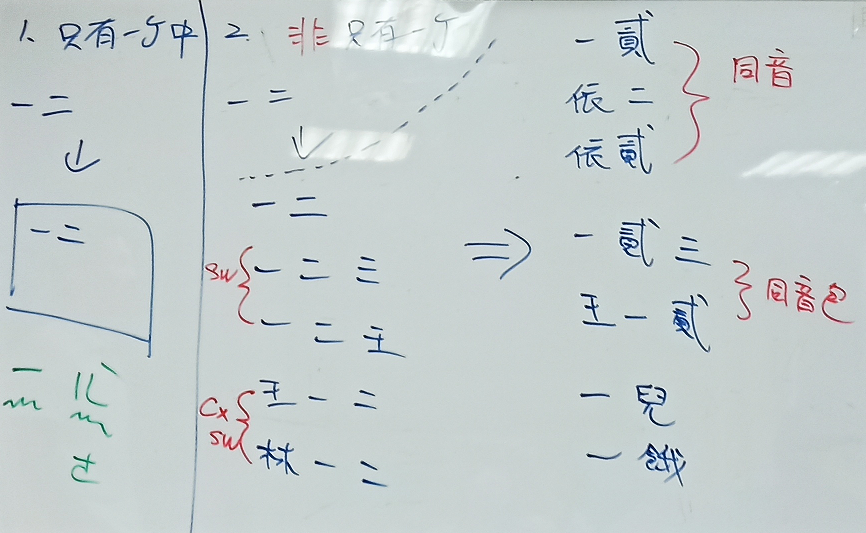 1. 只有一个中
一二
一
ㄦˋ
ㄜ
2. 非只有一个
一二
一二
SW 一二三
一二王
CX SW 王一二
林一二
一貳
依二
依貳
同音
一貳三
王一貳
同音包
一兒
一餓